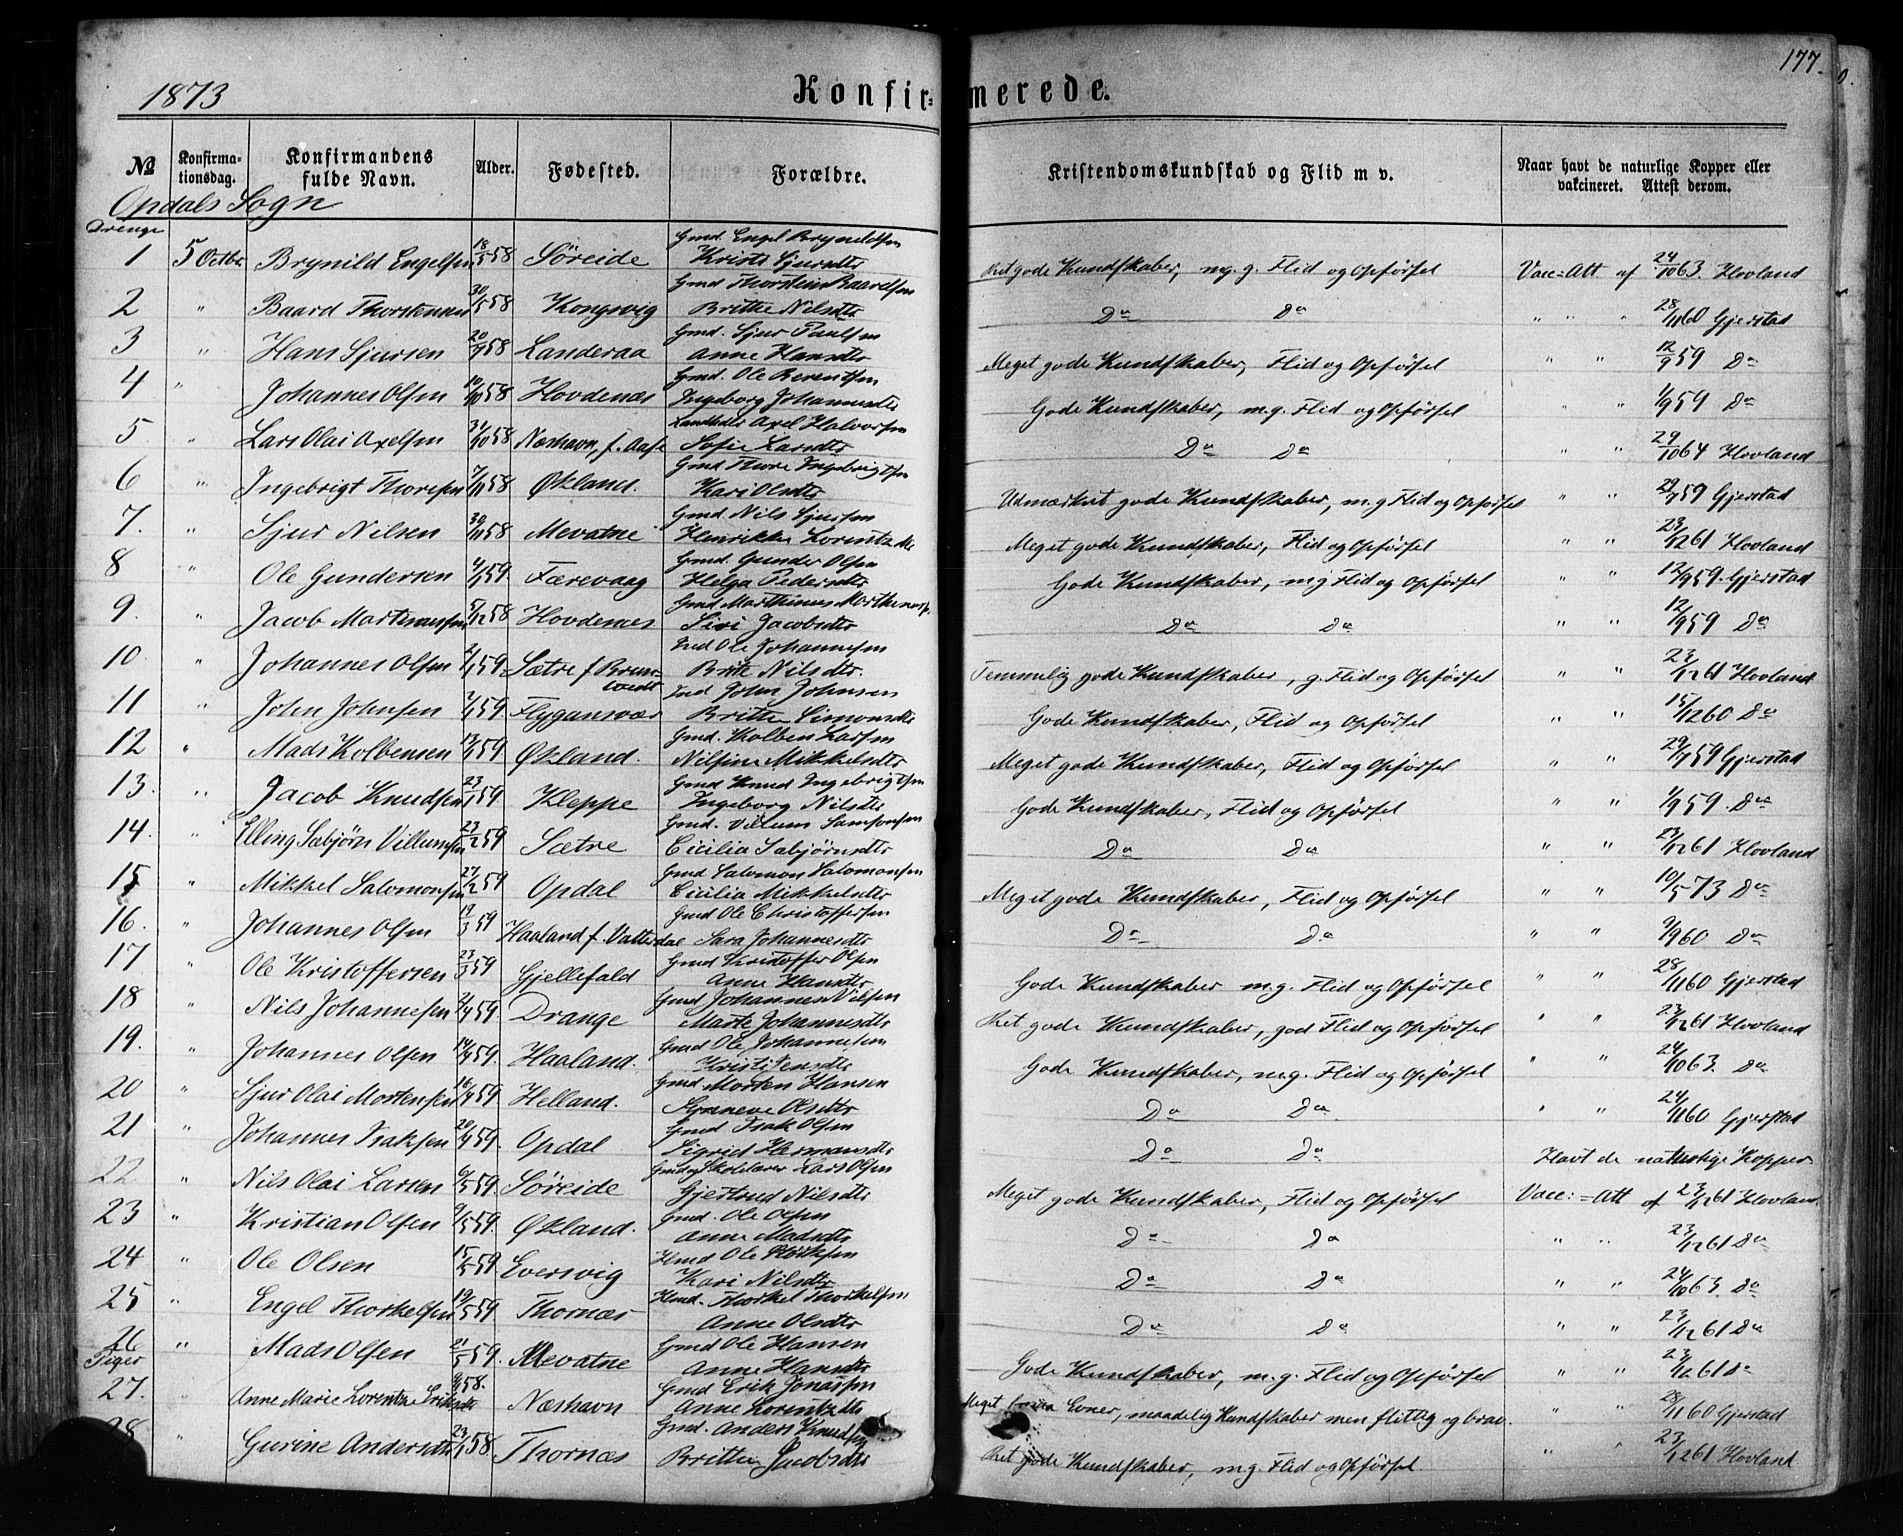 1873 Konfir= merede. 177.
№ Konfirma-tionsdag. Konfirmandens fulde Navn. Alder. Fødested. Forældre. Kristendomskundskab og Flid m v. Naar havt de naturlige Kopper eller vakcineret. Attest derom.
Opdals Sogn
Drenge
Gmd. Engel Bryneldsen
1 5 Octbr. Brynild Engelsen 18/5 58 Søreide Kristi Sjursdtr Ret gode Kundskaber, mg. g. Flid og Opførsel Vacc=Att af 24/10 63. Hovland
Gmd Thorstein Baardsen
2 " Baard Thorstensen 30/5 58 Kongsvig Britha Nilsdtr Do Do " " " 28/11 60 Gjerstad
Gmd. Sjur Paulsen
3 " Hans Sjursen 20/9 58 Landeraa Anne Hansdtr Meget gode Kundskaber, Flid og Opførsel " " 12/9 59 Do
Gmd. Ole Berentsen
4 " Johannes Olsen 10/10 58 Hovdenæs Ingeborg Johannesdtr Gode Kundskaber, m.g. Flid og Opførsel " " 1/9 59 Do
Axel Halvorsen
5. " Lars Olai Axelsen 31/10 58 Næshavn, f. Sofie Larsdtr Do Do " " 29/10 64 Hovland
Gmd Thore Ingebrigtsen
6 " Ingebrigt Thoresen 7/11 58 Økland. Kari Olsdtr Udmærket gode Kundskaber, m.g Flid og Opførsel " " 29/7 59 Gjerstad
Gmd. Nils Sjursen
7. " Sjur Nilsen 30/11 58 Mevatne Henrikke Lorentzdtr Meget gode Kundskaber, Flid og Opførsel " " 23/12 61 Hovland
Gmd. Gunder Olsen
8 " Ole Gundersen 59. Færevaag Helga Pedersdtr Gode Kundskaber, mg Flid og Opførsel " " 12/9 59. Gjerstad
Gmd Marthinus
9. " Jacob 5/12 58 Hovdenes Siri Jacobsdtr Do Do " " 12/9 59 Do
Ole Johannesen
10. " Johannes Olsen 2/1 59. Sætre f Brite Nilsdtr. Temmelig gode Kundskaber, g. Flid og Opførsel " " 23/12 61 Hovland
John Johnsen
11 " John Johnsen 7/1 59 Flygansvær Britha Simonsdtr Gode Kundskaber, Flid og Opførsel " " 15/12 60 Do
Gmd. Kolben Larsen
12 " Mads Kolbensen 13/1 59. Økland. Nilsine Mikkelsdtr Meget gode Kundskaber, Flid og Opførsel " " 29/7 59 Gjerstad
Gmd Knud Ingebrigtsen
13. " Jacob Knudsen 23/1 59 Kleppe Ingeborg Nilsdtr Gode Kundskaber, Flid og Opførsel " " 1/9 59. Do
Gmd. Villum Samsonsen
14. " Elling Sabjørn Villumsen 23/2 59 Sætre Cicilia Sabjørnsdtr Do Do " " 23/12 61 Hovland
Gmd Salomon Salomonsen
15 " Mikkel Salomonsen 27/2 59 Opdal Cicilia Mikkelsdtr Meget gode Kundskaber, Flid og Opførsel " " 10/5 73 Do
Gmd Ole Christoffersen
16. " Johannes Olsen 19/3 59 Haaland f. Vatterdal Sara Johannesdtr Do Do " " 9/9 60 Do
Gmd Kristoffer Olsen
17 " Ole Kristoffersen 23/3 59 Gjellefald Anne Hansdtr Gode Kundskaber m.g. Flid og Opførsel " " 28/11 60 Gjerstad
Gmd Johannes Nilsen
18 " Nils Johannesen 2/4 59. Drange Marte Johannesdtr Ret gode Kundskaber, god Flid og Opførsel " " 23/12 61 Hovland
Gmd Ole Johannesen
19. " Johannes Olsen 14/4 59. Haaland. Kristi Gode Kundskaber, m.g. Flid og Opførsel " " 24/10 63. Do
Gmd Morten Hansen
20 " Sjur Olai Mortensen 16/4 59 Helland. Olsdtr Do Do " " 24/11 60 Gjerstad
Gmd Isak Olsen
21 " Johannes Isaksen 20/4 59. Opdal Sigrid Hermansdtr Do Do Havt de naturlige Kopper
Gmd og Skolelærer Lars Olsen
22 " Nils Olai Larsen 6/5 59. Søreide Gjertrud Nilsdtr Meget gode Kundskaber, Flid og Opførsel Vacc:=Att af 23/12 61 Hovland.
Gmd. Ole Olsen
23 " Kristian Olsen 9/5 59. Økland. Anne Madsdtr Do Do " " 23/12 61 Do
Hmd Ole
24 " Ole Olsen 15/5 59 Eversvig Kari Nilsdtr Do Do " " 24/10 63. Do
Hmd. Thorkel Thorkelsen
25 " Engel Thorkelsen 19/5 59 Thornæs Anne Olsdtr Do Do " " 23/12 61 Do
Gmd Ole Hansen
26 " Mads Olsen 21/5 59. Mevatne Anne Hansdtr Gode Kundskaber, m.g. Flid og Opførsel " " 23/12 61 Do
Piger
Gmd Erik Jonassen
27. " Anne Marie Lorentze Eriksdtr 58. Næshavn Anne Lorentzdtr Meget Evner, maadelig Kundskaber men flittig og brav. " " 28/11 60 Gjerstad
Gmd. Anders Knudsen
28 " Gurine Andersdtr 23/1 58 Thornæs Britha Jacobsdtr Ret gode Kundskaber, m.g Flid og Opførsel. " " 23/12 61 Hovland